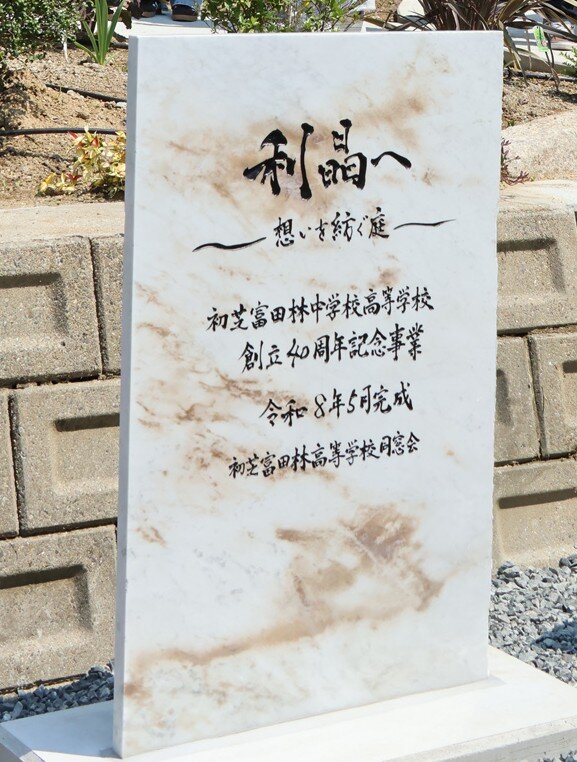 利晶へ
想いを紡ぐ庭
初芝富田林中学校高等学校
創立40周年記念事業
令和8年5月完成
初芝富田林高等学校同窓会